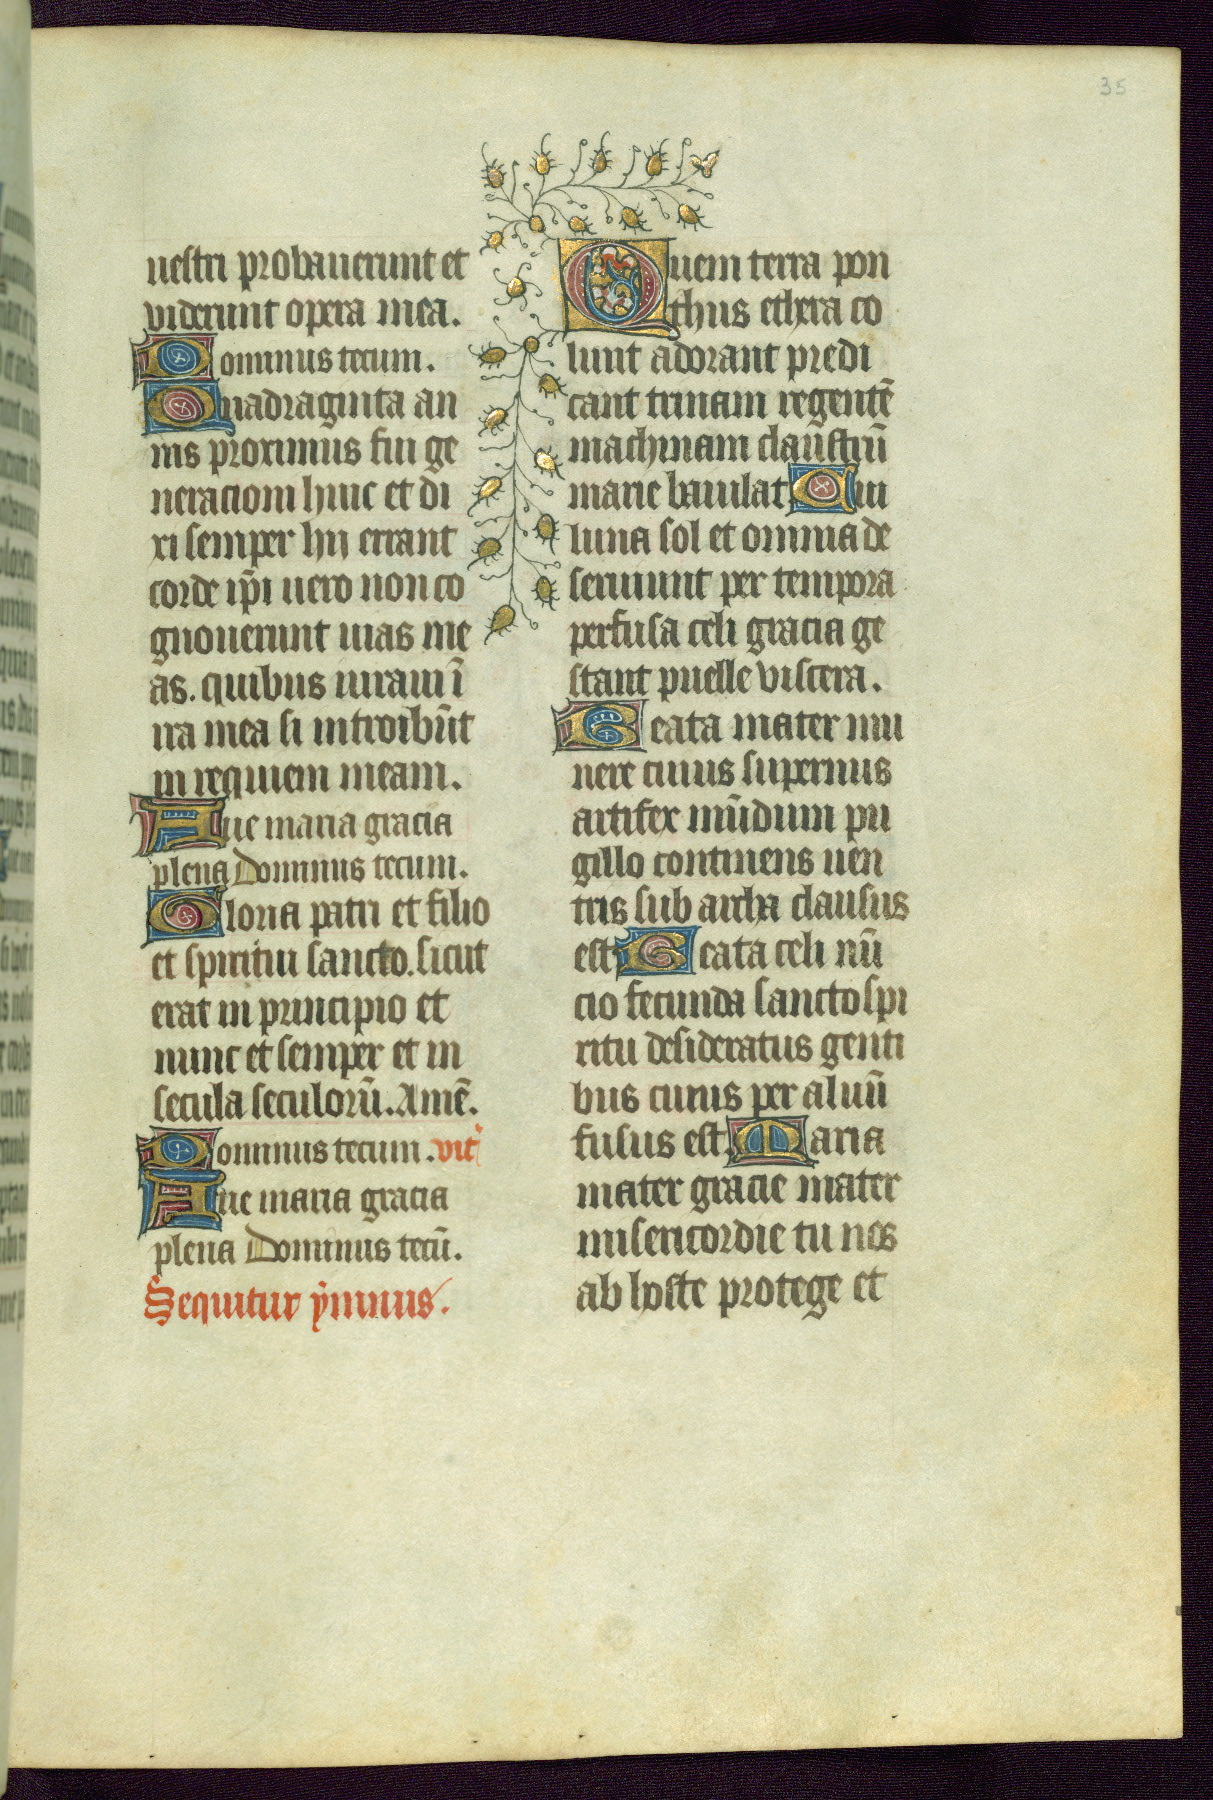 35
uestri probauerunt et
viderunt opera mea.
Dominus tecum.
Quadraginta an
nis proximus fui ge
neracioni huic et di
xi semper hij errant
corde ip̄i uero non co
gnouerunt uias me
as. quibus iuraui ī
ira mea si introibūt
in requiem meam.
Aue maria gracia
plena Dominus tecum.
Gloria patri et filio
et spiritui sancto. sicut
erat in principio et
nunc et semper et in
secula seculorū. Amē.
Dominus tecum. vit᷑
Aue maria gracia
plena Dominus tecū.
Sequitur ẏmnus.
Quem terra pon
thus ethera co
lunt adorant predi
cant trinam regentē
machinam claustrū
marie baiulat. Cui
luna sol et omnia de
seruiunt per tempora
perfusa celi gracia ge
stant puelle viscera.
Beata mater mu
nere cuius supernus
artifex mūdum pu
gillo continens uen
tris sub archa clausus
est. Beata celi nū
cio fecunda sancto spi
ritu desideratus genti
bus cuius per aluū
fusus est. Maria
mater gracie mater
misericordie tu nos
ab hoste protege et